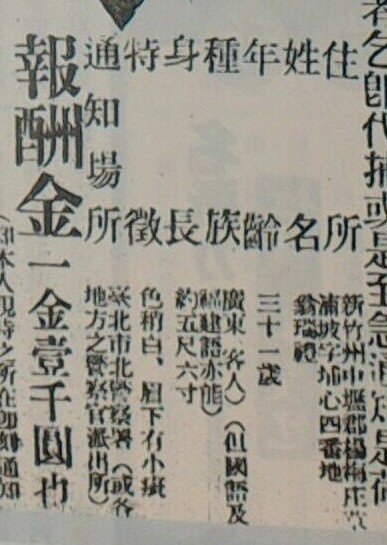 者乞卽代捕或是至急通知是荷
住所 新竹州中壢郡楊梅庄
湳坡字埔心四番地
姓名 翁瑞禮
年齡 三十一歲
種族 廣東(客人)(但國語及
福建語亦能)
身長 約五尺六寸
特徵 色稍白、眉下有小斑
通知場所 臺北市北警察署(或各
地方之警察官派出所)
報酬金一金壹千圓也
本人現時之所在卽刻通知